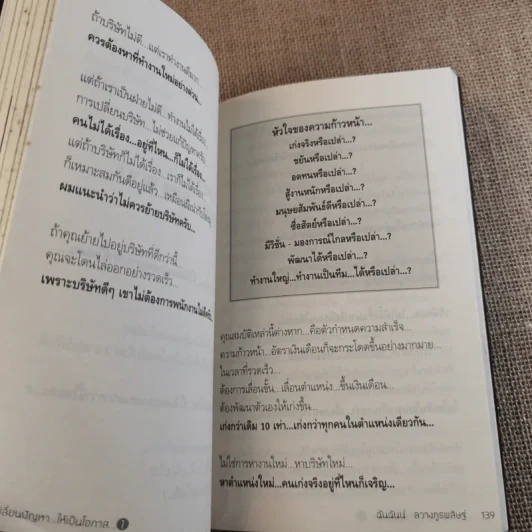 ถ้าบริษัทไม่ดี...แต่เราทำงานดีมาก...
ควรต้องหาที่ทำงานใหม่อย่างด่วน...
แต่ถ้าเราเป็นฝ่ายไม่ดี...ทำงานไม่ได้เรื่อง
การเปลี่ยนบริษัท...ไม่ช่วยแก้ปัญหาครับ
คนไม่ได้เรื่อง...อยู่ที่ไหน...ก็ไม่ได้เรื่อง
แต่ถ้าบริษัทก็ไม่ได้เรื่อง...เราก็ไม่ได้เรื่อง
ก็เหมาะสมกันดีอยู่แล้ว...
ผมแนะนำว่าไม่ควรย้ายบริษัทครับ...
ถ้าคุณย้ายไปอยู่บริษัทที่ดีกว่านี้...
คุณจะโดนไล่ออกอย่างรวดเร็ว...
เพราะบริษัทดีๆ เขาไม่ต้องการพนักงาน
เปลี่ยนปัญหา...ให้เป็นโอกาส...
หัวใจของความก้าวหน้า...
เก่งจริงหรือเปล่า...?
ขยันหรือเปล่า...?
อดทนหรือเปล่า...?
สู้งานหนักหรือเปล่า...?
มนุษยสัมพันธ์ดีหรือเปล่า...?
ซื่อสัตย์หรือเปล่า...?
มีวิชั่น - มองการณ์ไกลหรือเปล่า...?
พัฒนาได้หรือเปล่า...?
ทำงานใหญ่...ทำงานเป็นทีม...ได้หรือเปล่า...?
คุณสมบัติเหล่านี้ต่างหาก...คือตัวกำหนดความสำเร็จ...
ความก้าวหน้า...อัตราเงินเดือนก็จะกระโดดขึ้นอย่างมากมาย...
ในเวลาที่รวดเร็ว...
ต้องการเลื่อนขั้น...เลื่อนตำแหน่ง...ขึ้นเงินเดือน...
ต้องพัฒนาตัวเองให้เก่งขึ้น...
เก่งกว่าเดิม 10 เท่า...เก่งกว่าทุกคนในตำแหน่งเดียวกัน...
ไม่ใช่การหางานใหม่...หาบริษัทใหม่...
หาตำแหน่งใหม่...คนเก่งจริงอยู่ที่ไหนก็เจริญ...
ฉันฉันน์ ลวางกูรพสิษฐ์ 139